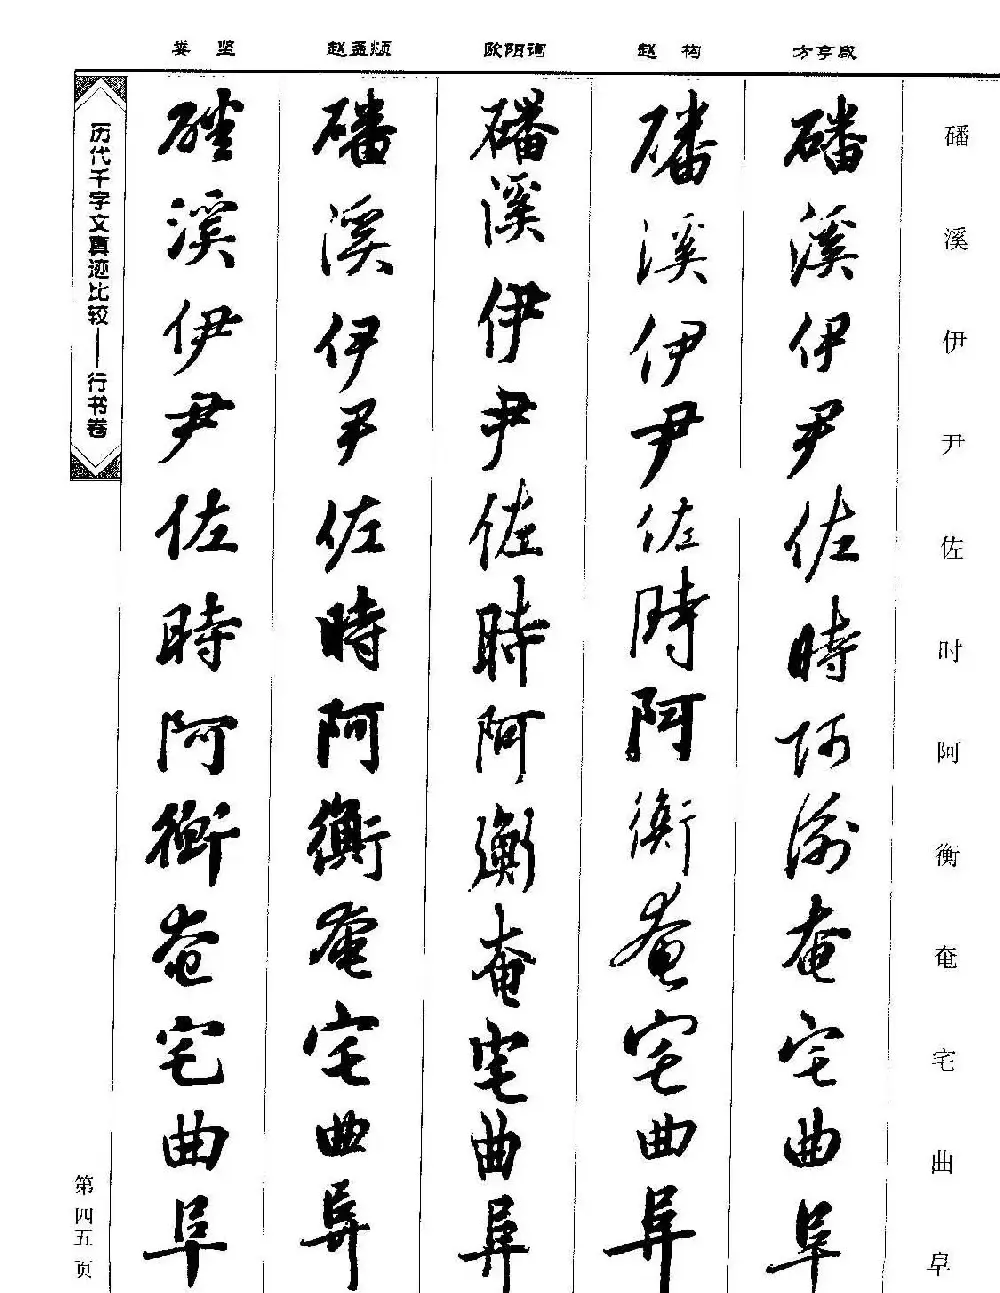 磻溪伊尹佐时阿衡奄宅曲阜
方亨咸
磻溪伊尹佐時阿衡奄宅曲阜
赵构
磻溪伊尹佐時阿衡奄宅曲阜
欧阳询
磻溪伊尹佐時阿衡奄宅曲阜
赵孟頫
磻溪伊尹佐時阿衡奄宅曲阜
娄坚
磻溪伊尹佐時阿衡奄宅曲阜
历代千字文真迹比较——行书卷
第四五页